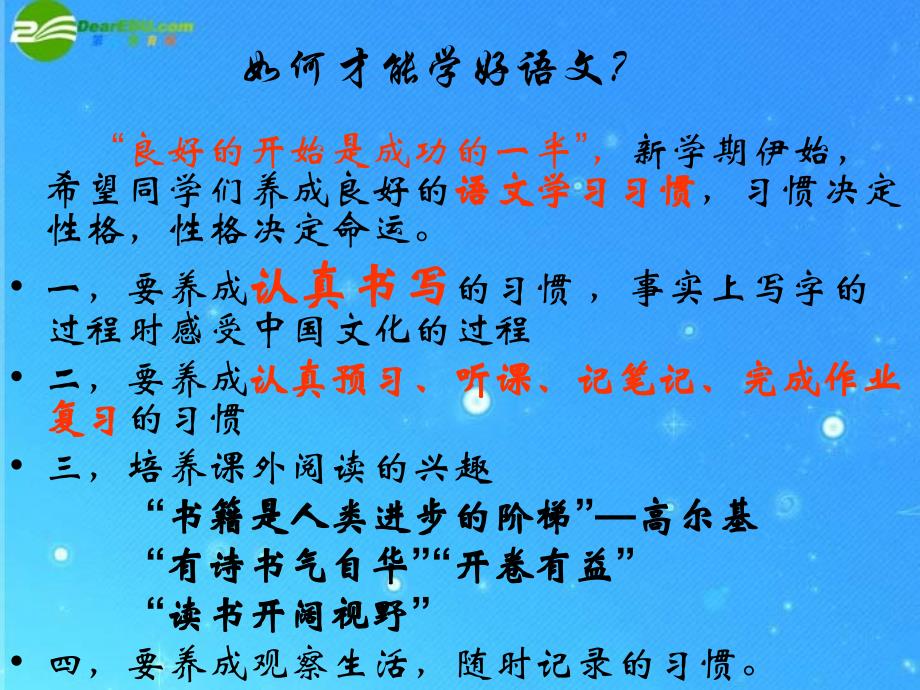 DearEDU.com
如何才能学好语文?
“良好的开始是成功的一半”,新学期伊始,
希望同学们养成良好的语文学习习惯,习惯决定
性格,性格决定命运。
• 一,要养成认真书写的习惯,事实上写字的
过程时感受中国文化的过程
• 二,要养成认真预习、听课、记笔记、完成作业
复习的习惯
• 三,培养课外阅读的兴趣
“书籍是人类进步的阶梯”—高尔基
“有诗书气自华”“开卷有益”
“读书开阔视野”
• 四,要养成观察生活,随时记录的习惯。